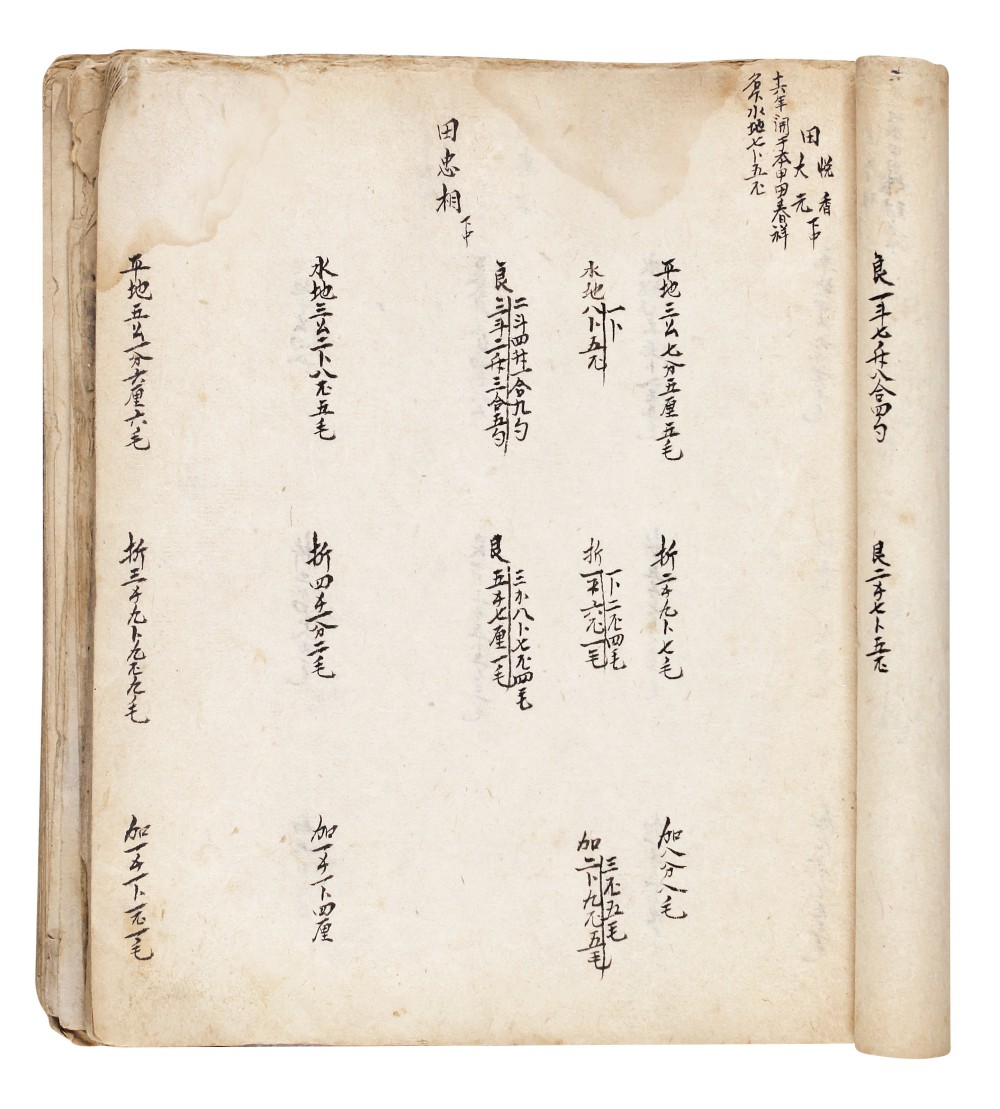 良一斗七升八合四勺
良二𠂇七卜五厘
悦香
田大元下中
十六年開干本甲田春祥
名下水地七卜五厘
平地三𠫤七分五厘五毛
折二𠂇九卜七毛
加八分八毛
一卜
水地八卜五厘
一卜二厘四毛
折一𠂇六厘一毛
三厘五毛
加二卜九厘五毛
二斗四升一合九勺
良三斗二升三合五勺
三𠂇八卜七厘四毛
良五𠂇七厘一毛
田忠相下中
水地三𠫤二卜八厘五毛
折四𠂇一分二毛
加一𠂇一卜四厘
平地五𠫤一分六厘六毛
折三𠂇九卜九厘九毛
加一𠂇一卜一厘一毛